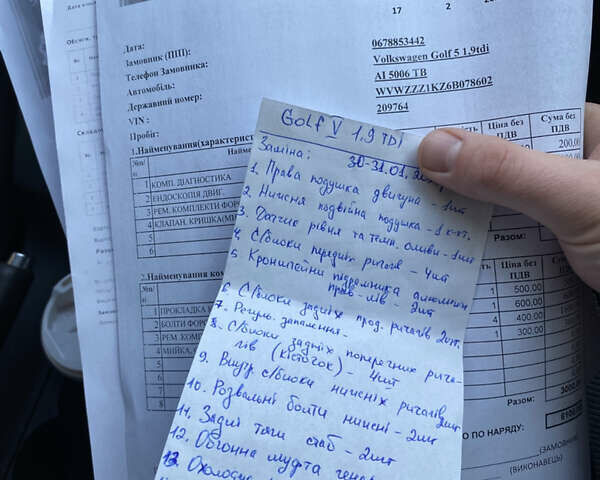 17 2
Дата:
Замовник (ПІП): 0678853442
Телефон Замовника: Volkswagen Golf 5 1,9tdi
Автомобіль: AI 5006 TB
Державний номер: WVWZZZ1KZ6B078602
VIN : 209764
Пробіг:
1.Найменування(характерист
№п/п Найм Ціна без ПДВ Сума без ПДВ
1 КОМП. ДІАГНОСТИКА 200,00
2 ЕНДОСКОПІЯ ДВИГ.
3 РЕМ. КОМПЛЕКТИ ФОР
4 КЛАПАН. КРИШКА(МИ
5
6
Разом:
2.Найменування ком
№п/п Ціна без ПДВ Сума без ПДВ
1 ПРОКЛАДКА 1 500,00 500,
2 БОЛТИ ФОР 4 150,00 600,
3 РЕМ. КОМП 4 400,00
4 МИЙКА, 1 300,00
5
6
7
8
Разом: 3000,
О ПО НАРЯДУ: 6100,
(ЗАМОВНИ
(ВИКОНАВЕЦЬ)
Golf V 1.9 TDI
Заміна: 30-31.01.
1. Права подушка двигуна - 1шт
2. Нижня подвійна подушка - 1 к-кт.
3. Датчик рівня та темп. оливи - 1шт
4. С/блоки передніх ричагів - 4шт
5. Кронштейни підрамника
прав-лів - 2шт
6. С/блоки задніх прод. ричагів 2шт.
7. Регул. запалення -
8. С/блоки задніх поперечних рича-
гів (кісточок) - 4шт
9. Внутр с/блоки нижніх ричагів 2шт
10. Розвальні болти нижні - 2шт
11. Задні тяги стаб - 2шт
12. Обгонна муфта генер
13. Охолодж